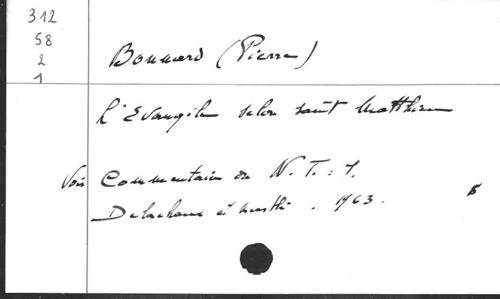 312
58
2
1
Bonnard (Pierre)
L'Evangile selon saint Matthieu
Voir Commentaire du N.T.: 1.
Delachaux et Niestlé. 1963.
B